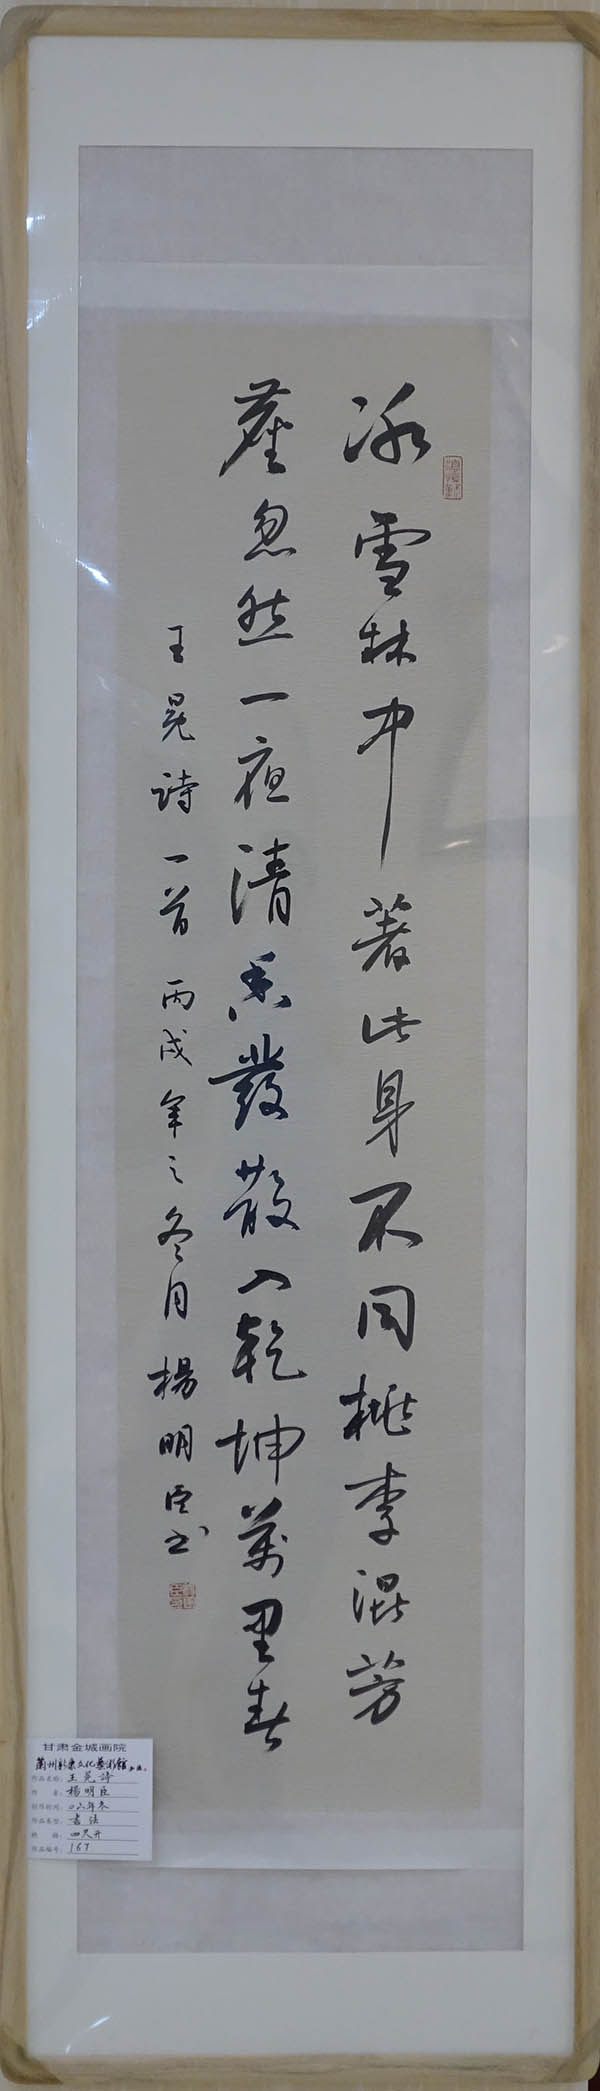 冰雪林中著此身不同桃李混芳
塵忽然一夜清香發散入乾坤萬里春
王冕詩一首丙戌年之冬月楊明臣书
甘肃金城画院
蘭州彩豪文化藝術館
作品名称：王冕詩
作者：楊明臣
创作时间：06年冬
作品类型：书法
规格：四尺开
作品编号：167